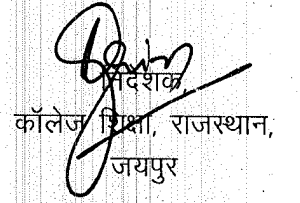 निदेशक,
कॉलेज शिक्षा, राजस्थान,
जयपुर